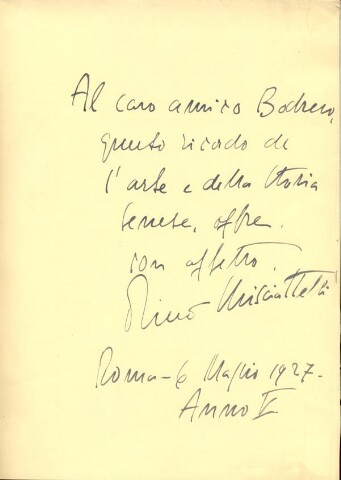 Al caro amico Bodrero,
questo ricordo de
l'arte e della storia
senese, offre
con affetto.
Piero Misciattelli
Roma - 6 Maggio 1927 -
Anno V